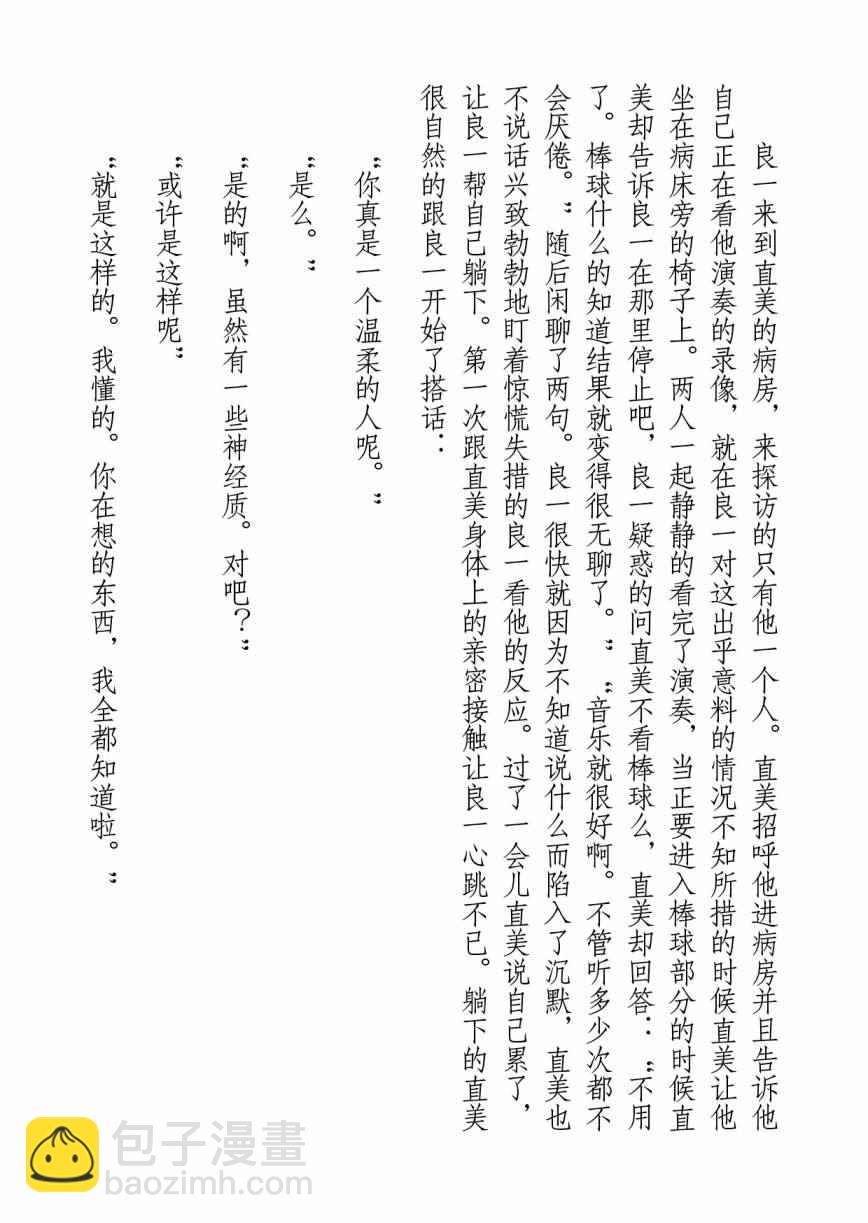 良一来到直美的病房，来探访的只有他一个人。直美招呼他进病房并且告诉他
自己正在看他演奏的录像，就在良一对这出乎意料的情况不知所措的时候直美让他
坐在病床旁的椅子上。两人一起静静的看完了演奏，当正要进入棒球部分的时候直
美却告诉良一在那里停止吧，良一疑惑的问直美不看棒球么，直美却回答：“不用
了。棒球什么的知道结果就变得很无聊了。”“音乐就很好啊。不管听多少次都不
会厌倦。”随后闲聊了两句。良一很快就因为不知道说什么而陷入了沉默，直美也
不说话兴致勃勃地盯着惊慌失措的良一看他的反应。过了一会儿直美说自己累了，
让良一帮自己躺下。第一次跟直美身体上的亲密接触让良一心跳不已。躺下的直美
很自然的跟良一开始了搭话：
“你真是一个温柔的人呢。”
“是么。”
“是的啊，虽然有一些神经质。对吧？”
“或许是这样呢”
“就是这样的。我懂的。你在想的东西，我全都知道啦。”
包子漫畫
baozimh.com